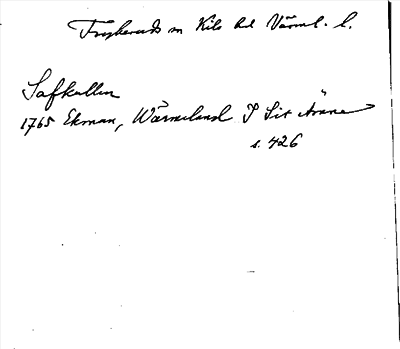 Frykeruds sn Kils hd Värml. l.
Safkullen
1765 Ekman, Wärmeland I Sit Ämne
s. 426